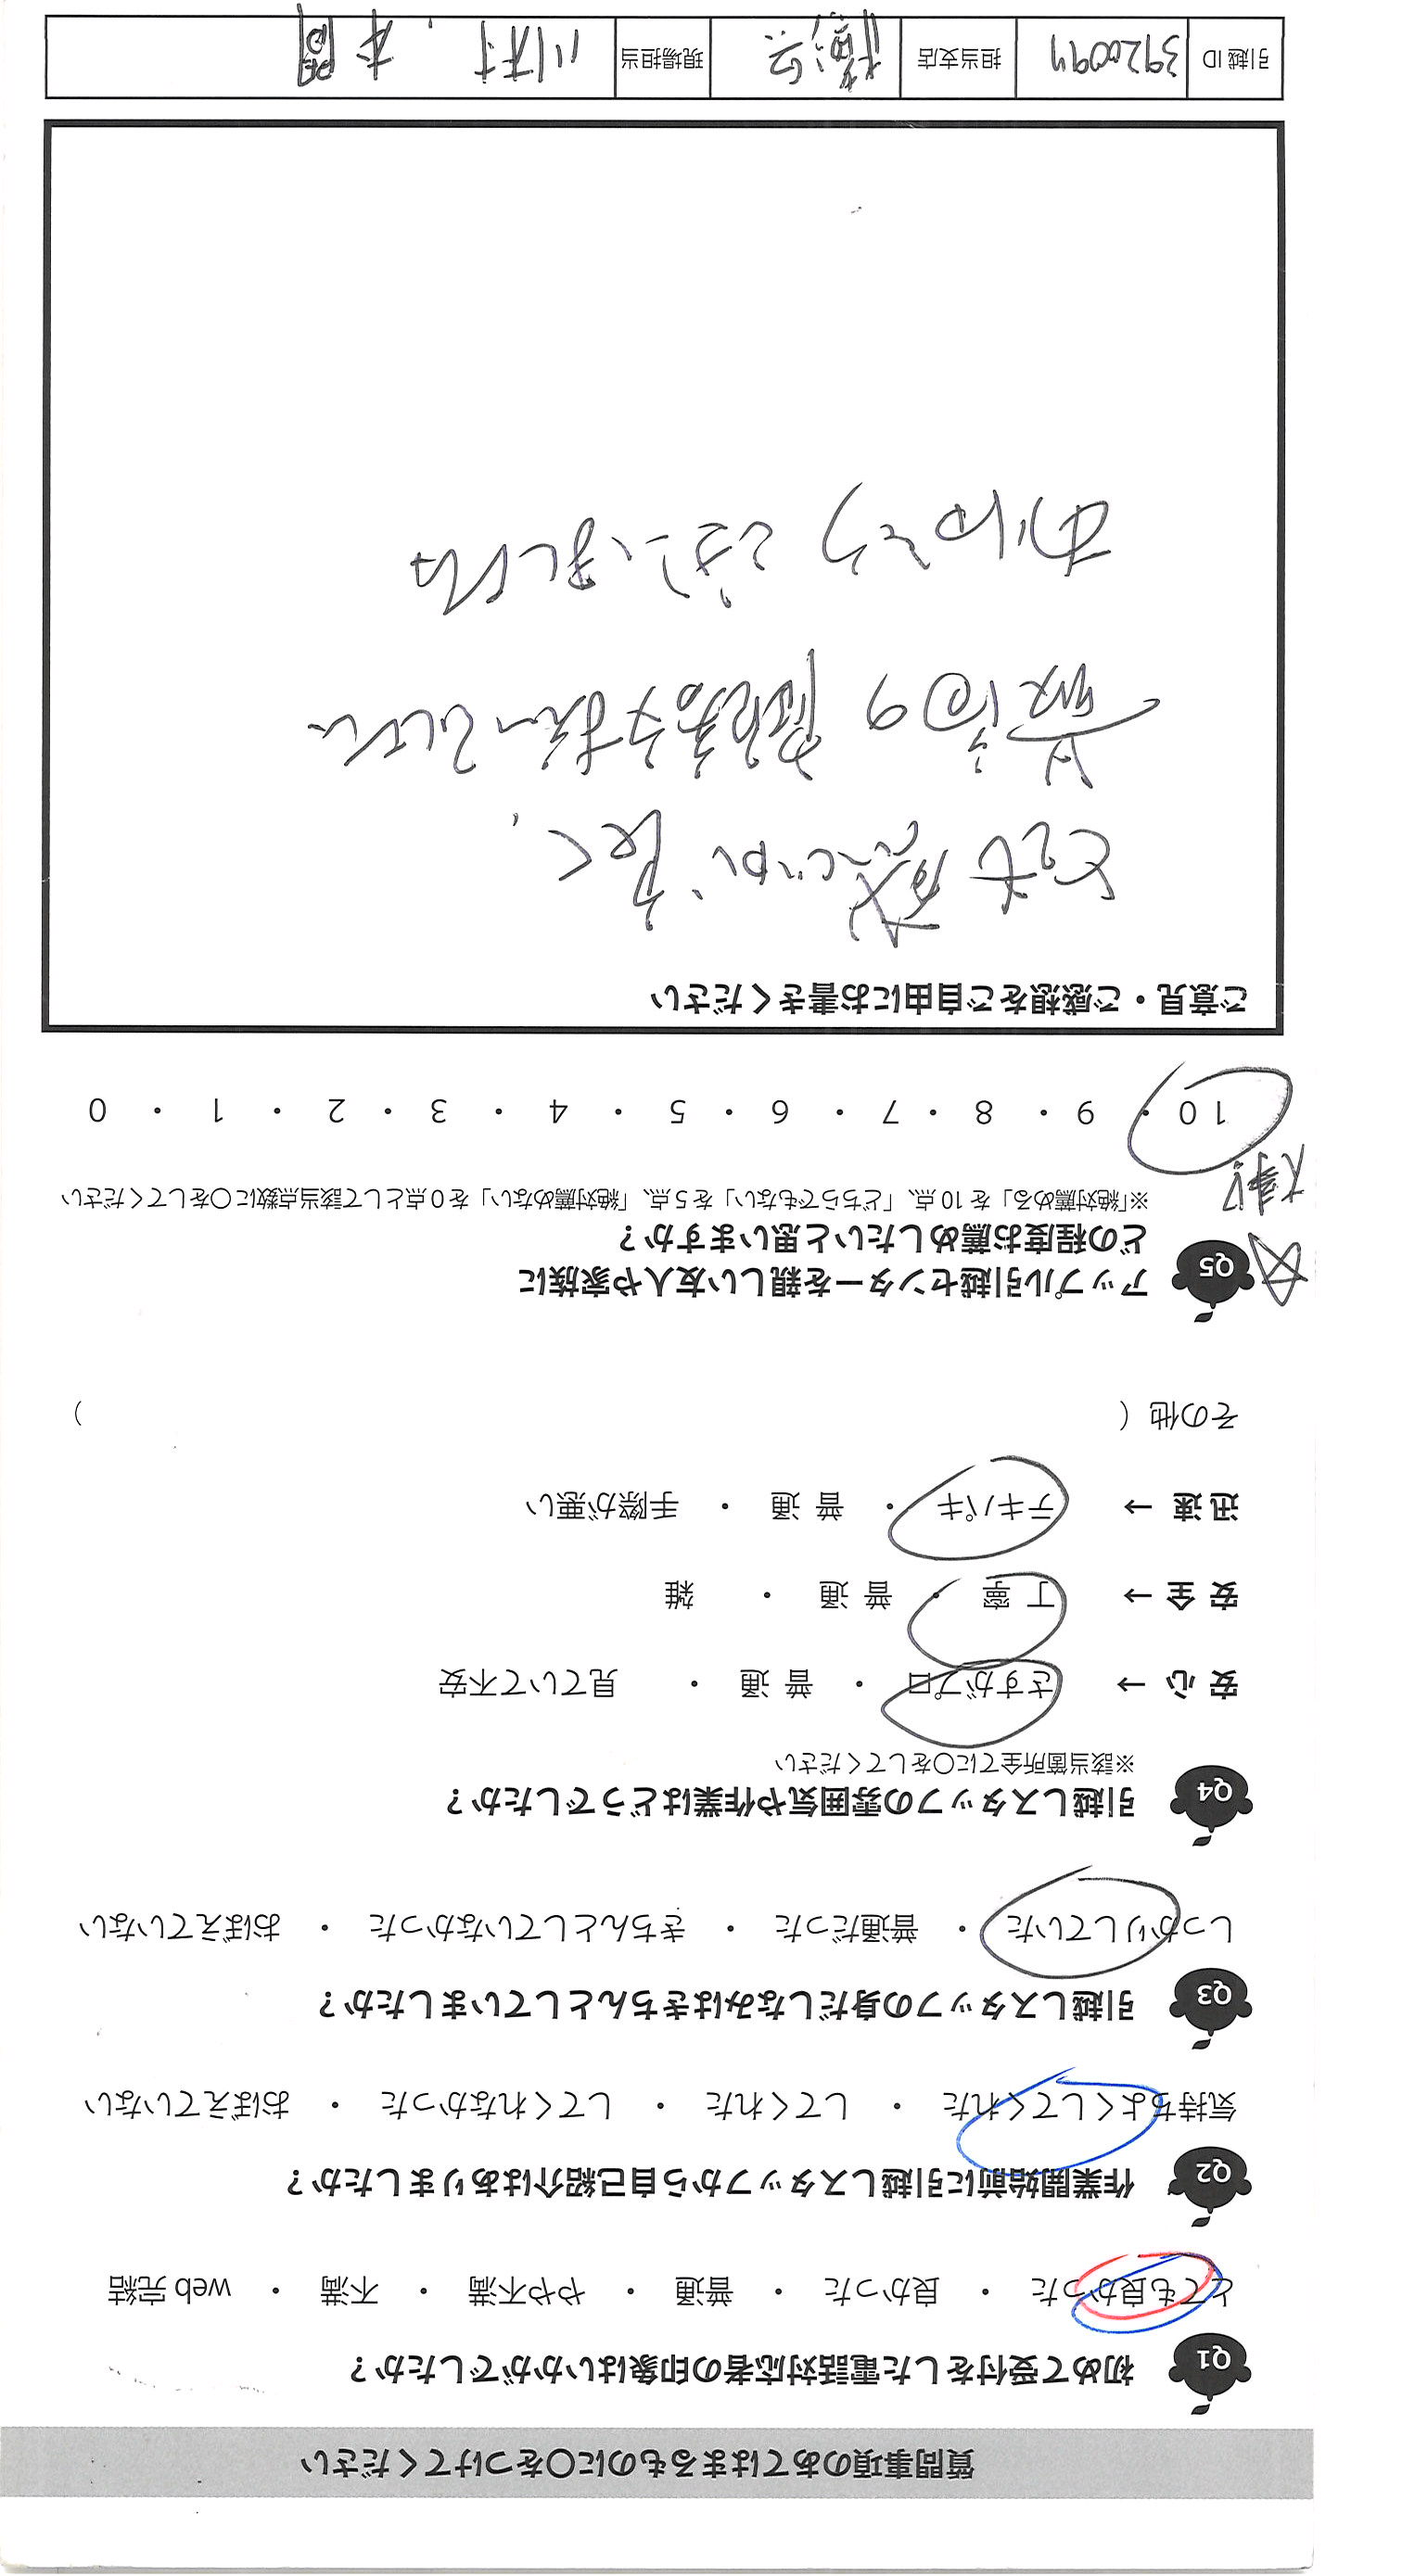 質問事項のあてはまるものに〇をつけてください
Q1 初めて受付をした電話対応者の印象はいかがでしたか？
とても良かった ・ 良かった ・ 普通 ・ やや不満 ・ 不満 ・ web 完結
Q2 作業開始前に引越しスタッフから自己紹介はありましたか？
気持ちよくしてくれた ・ してくれた ・ してくれなかった ・ おぼえていない
Q3 引越しスタッフの身だしなみはきちんとしていましたか？
しっかりしていた ・ 普通だった ・ きちんとしていなかった ・ おぼえていない
Q4 引越しスタッフの雰囲気や作業はどうでしたか？
※該当箇所全てに〇をしてください
安 心 → さすがプロ ・ 普 通 ・ 見ていて不安
安 全 → 丁 寧 ・ 普 通 ・ 雑
迅 速 → テキパキ ・ 普 通 ・ 手際が悪い
その他 （ ）
☆ Q5 アップル引越センターを親しい友人や家族に
どの程度お薦めしたいと思いますか？
大事!
※「絶対薦める」を 10 点、「どちらでもない」を 5 点、「絶対薦めない」を 0 点として該当点数に〇をしてください
10 ・ 9 ・ 8 ・ 7 ・ 6 ・ 5 ・ 4 ・ 3 ・ 2 ・ 1 ・ 0
ご意見・ご感想をご自由にお書きください
とても感じが良く、
最高の
ありがとうございました
引越 ID 3920097 担当支店 横浜 現場担当 川村、本間